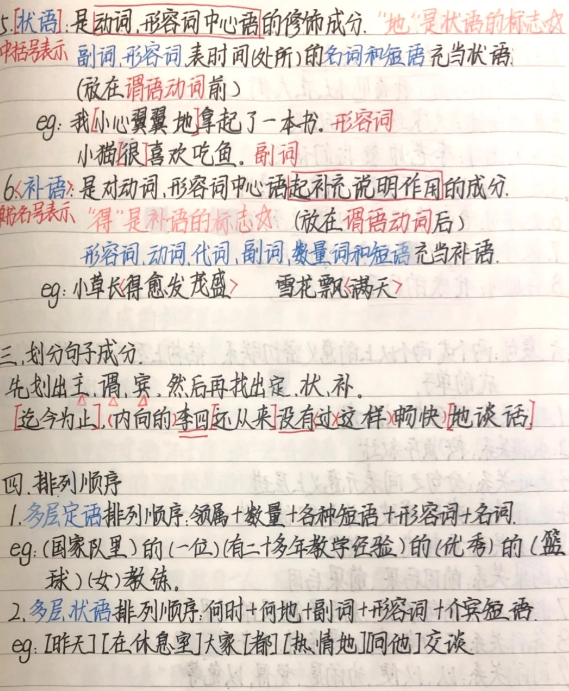 5.[状语]:是动词、形容词中心语的修饰成分.“地”是状语的标志☆
中括号表示 副词、形容词、表时间(处所)的名词和短语充当状语.
(放在谓语动词前)
eg:我[小心翼翼地]拿起了一本书.形容词
小猫[很]喜欢吃鱼.副词
6.<补语>:是对动词、形容词中心语起补充说明作用的成分.
单书名号表示 “得”是补语的标志☆ (放在谓语动词后)
形容词、动词、代词、副词、数量词和短语充当补语.
eg:小草长<得愈发茂盛> 雪花飘<满天>
三.划分句子成分.
先划出主、谓、宾,然后再找出定、状、补。
[迄今为止],(内向的)李四[还从来]没有过(这样)(畅快)[地谈话]
四.排列顺序
1.多层定语排列顺序:领属+数量+各种短语+形容词+名词.
eg:(国家队里)的(一位)(有二十多年教学经验)的(优秀)的(篮
球)(女)教练。
2.多层状语排列顺序:何时+何地+副词+形容词+介宾短语.
eg:[昨天][在休息室]大家[都][热情地][同他]交谈